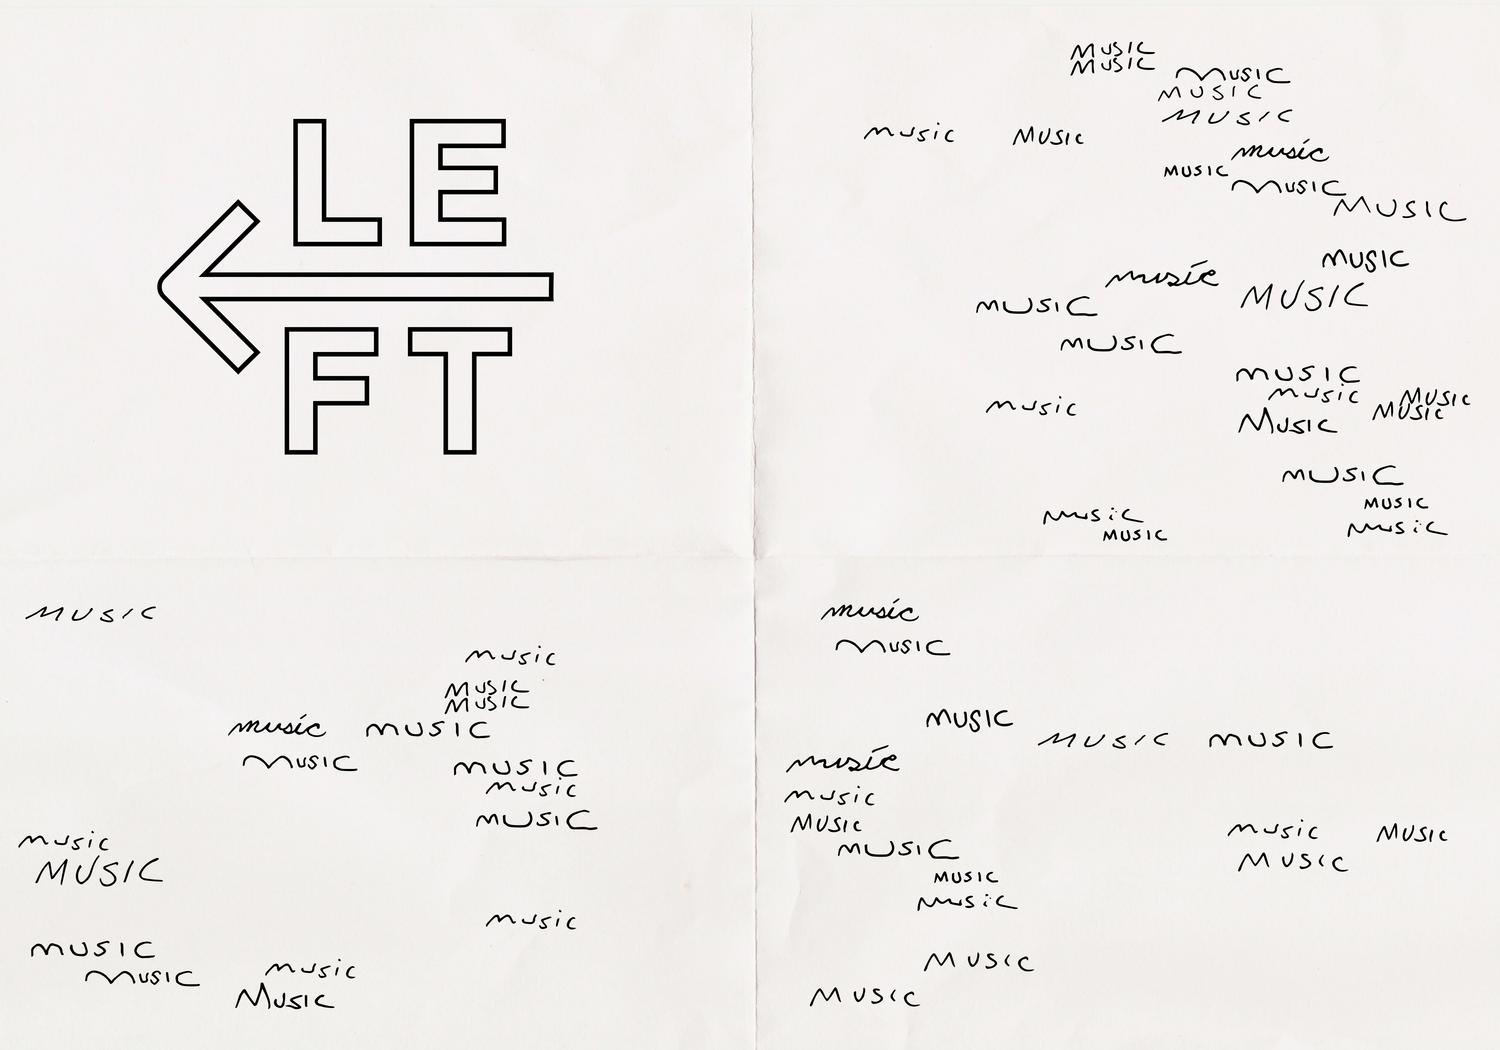 LE
FT
MUSIC
MUSIC
MUSIC
MUSIC
MUSIC
music MUSIC
music
MUSIC
MUSIC
MUSIC
MUSIC
music
MUSIC
MUSIC
MUSIC
MUSIC
music MUSIC
music MUSIC
Music
MUSIC
MUSIC
music
music
MUSIC
MUSIC
music
MUSIC
MUSIC
music MUSIC
MUSIC MUSIC
music
MUSIC
music
MUSIC
music
MUSIC
MUSIC music
Music
music
MUSIC
MUSIC
MUSIC MUSIC
music
music
MUSIC music MUSIC
MUSIC MUSIC
MUSIC
music
MUSIC
MUSIC